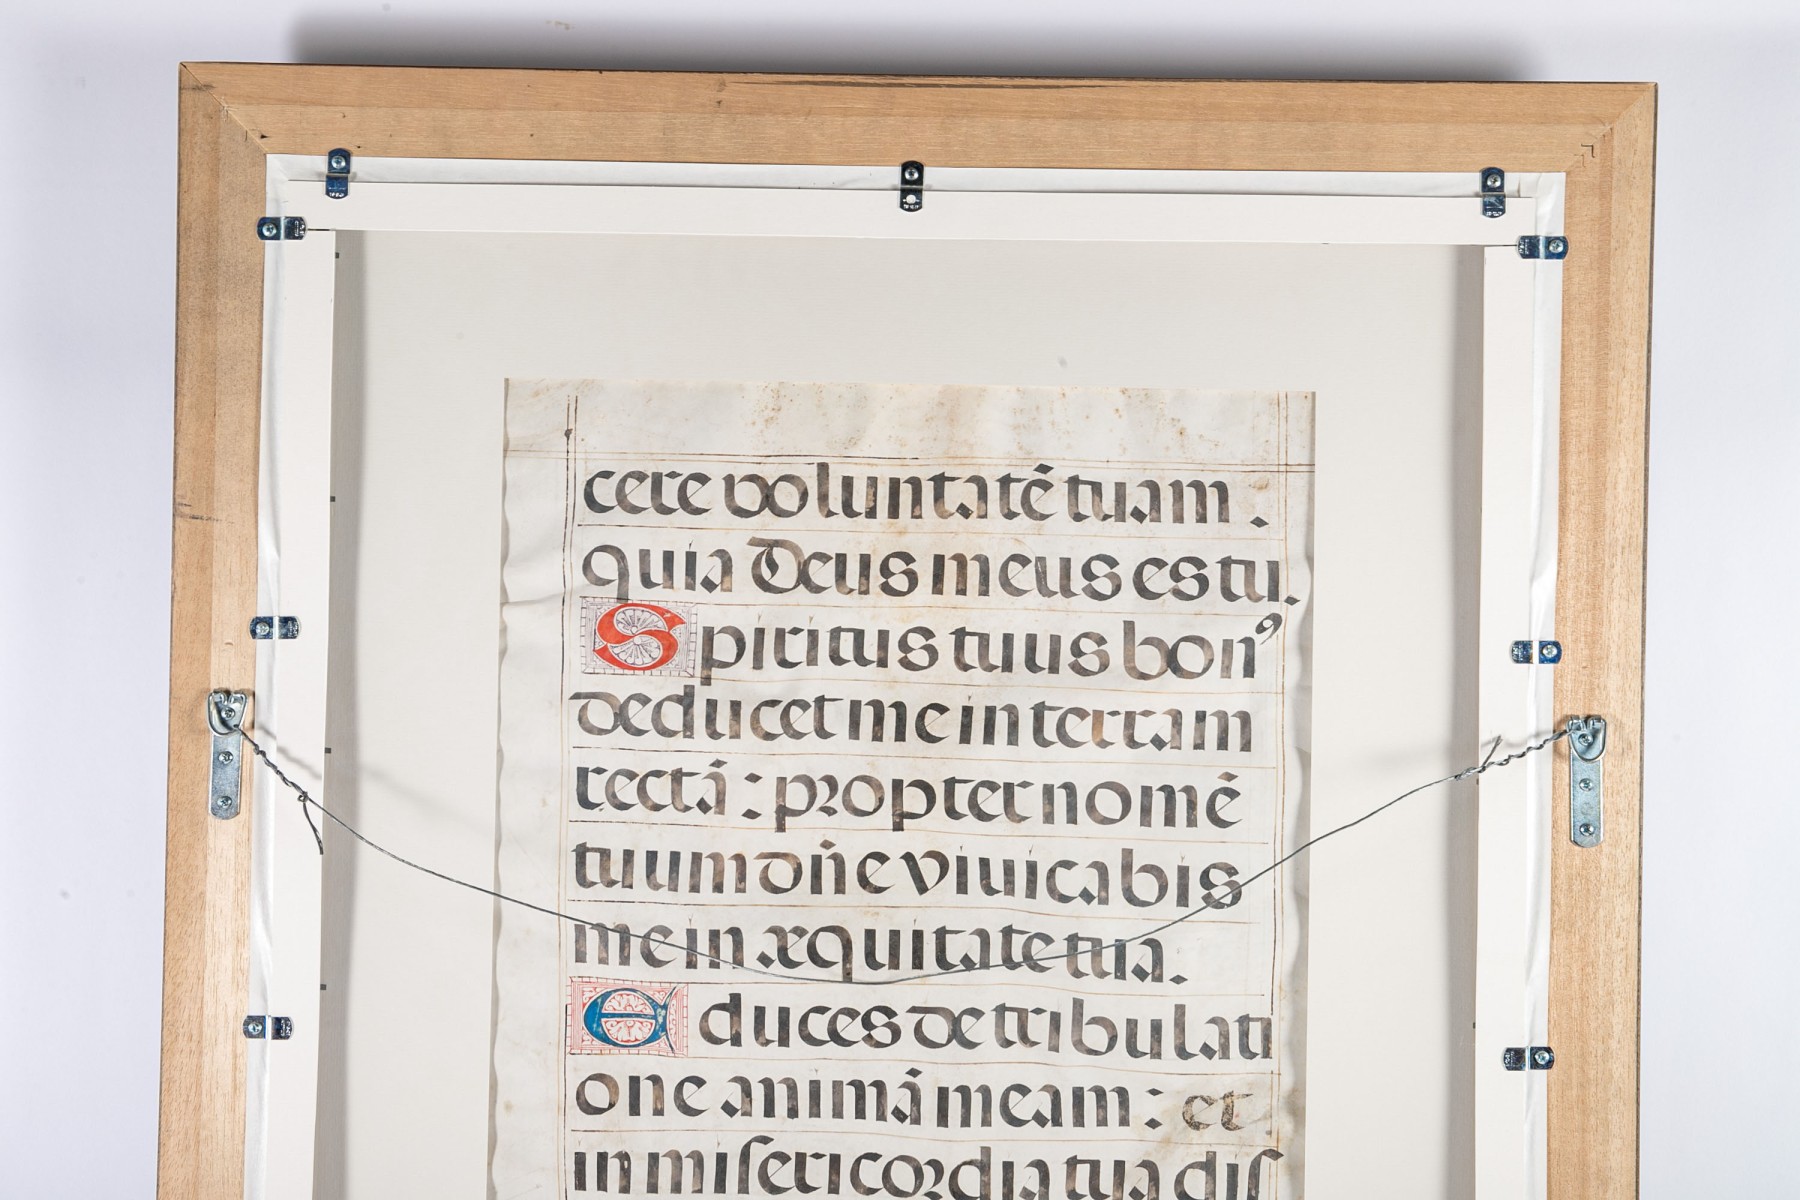 cere voluntatē tuam .
quia Deus meus es tu.
Spiritus tuus bonꝰ
deducet me in terram
rectā : propter nomē
tuum dn̄e vivicabis
me in æquitate tua.
Educes de tribulati
one animā meam : et
in miſericordia tua diſ